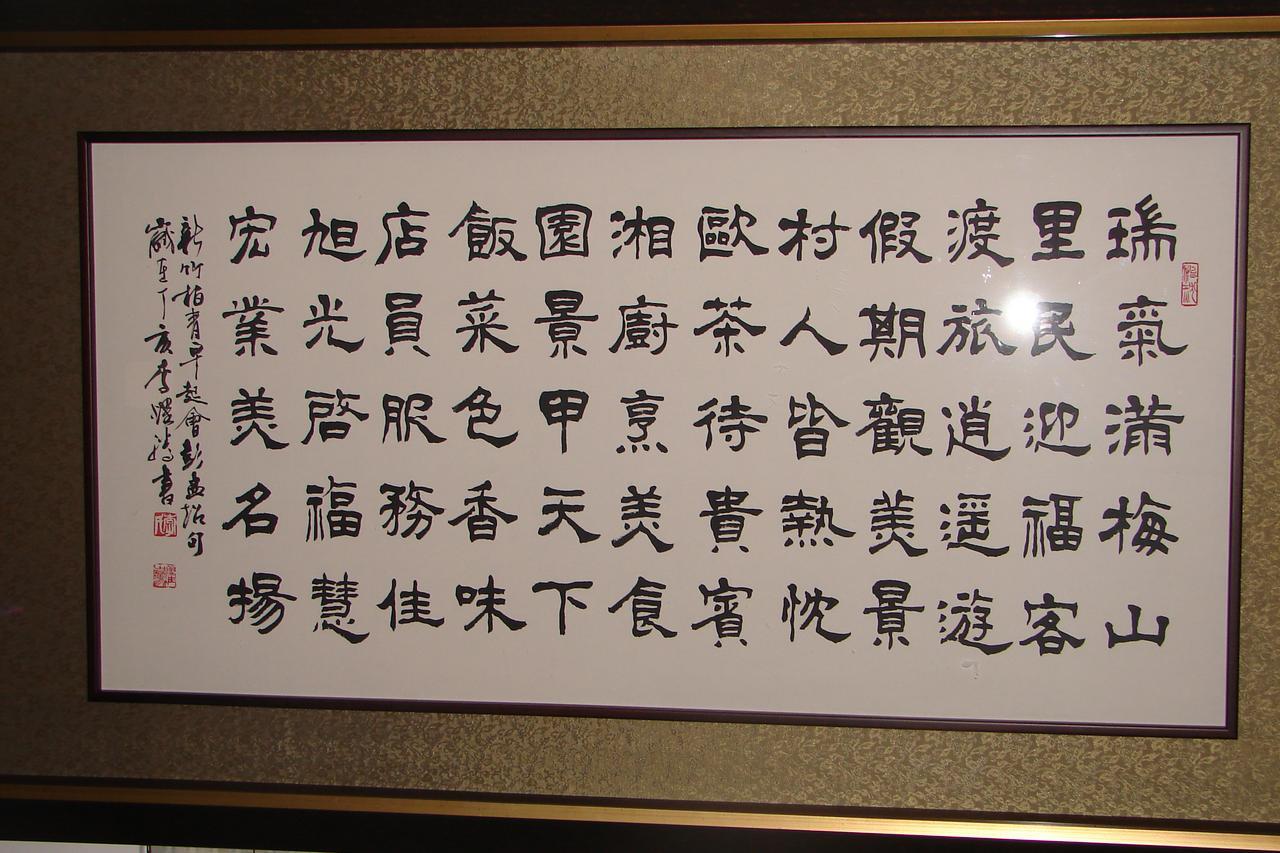 瑞氣滿梅山
里民迎福客
渡旅逍遥遊
假期觀美景
村人皆熱忱
歐茶待貴賓
湘廚烹美食
園景甲天下
飯菜色香味
店員服務佳
旭光啓福慧
宏業美名揚
新竹柏青早起會彭孟紹句
歲至丁亥李書